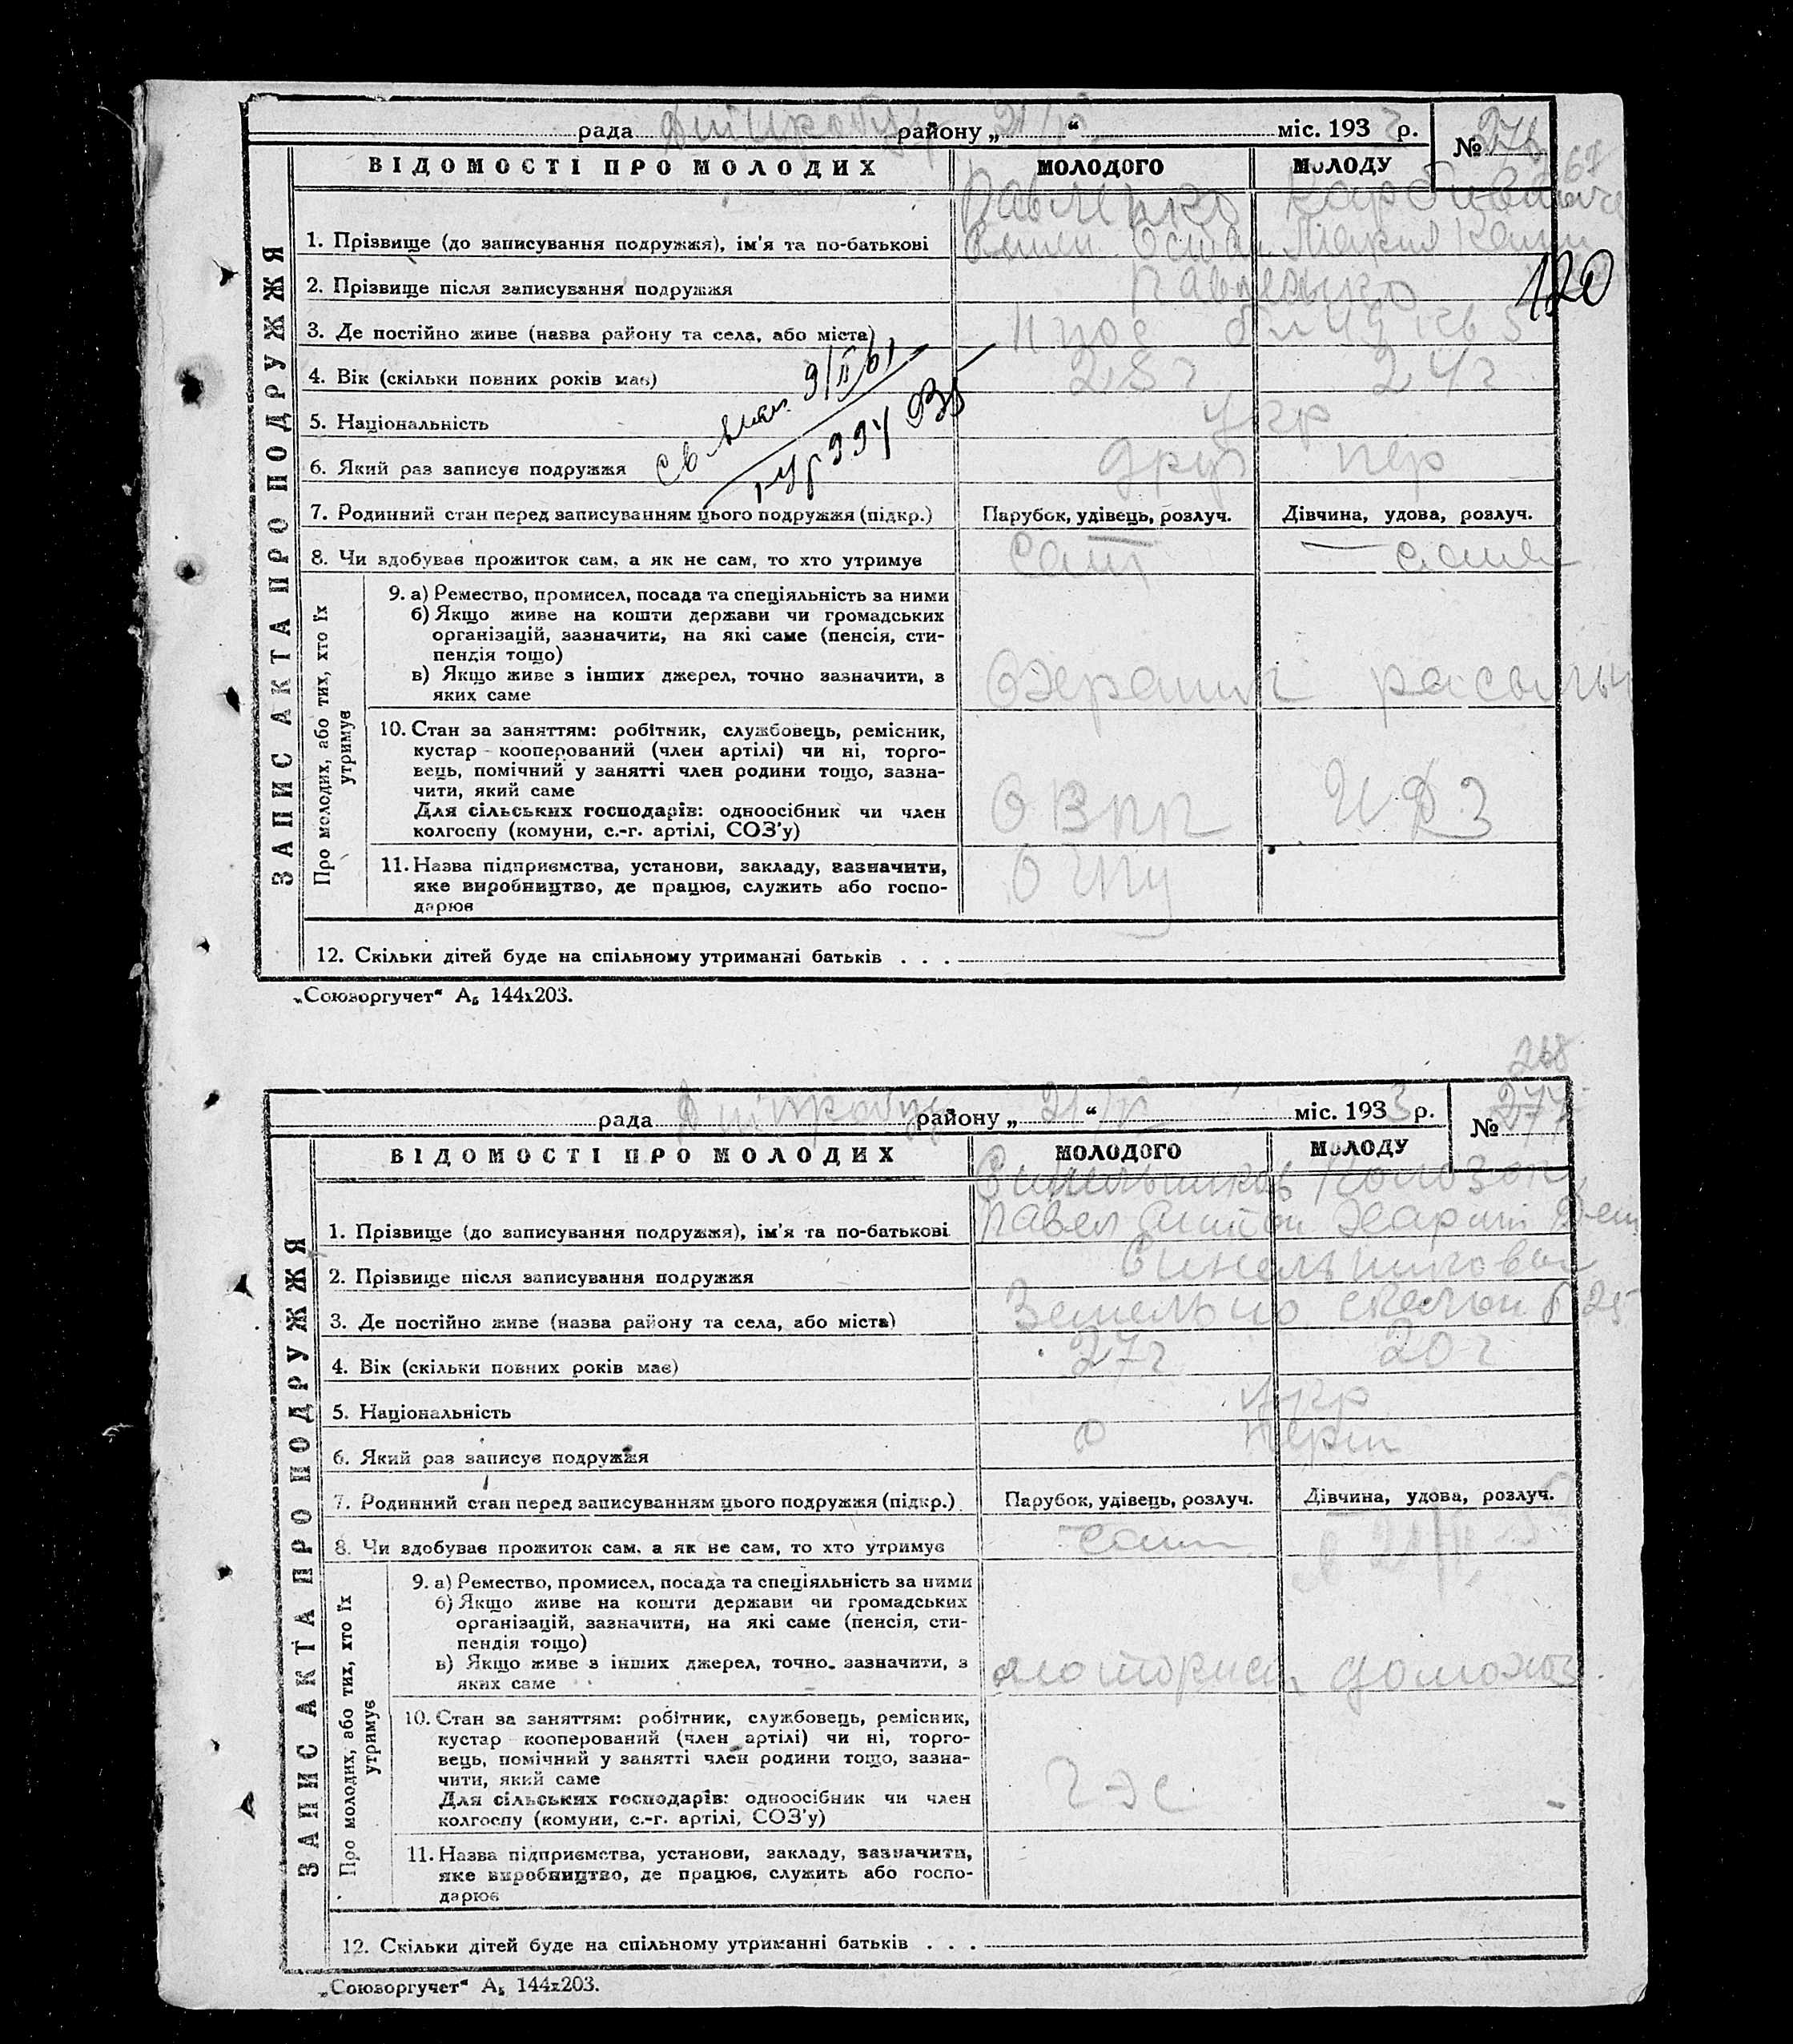 рада района „ “ міс. 193 р. №
ВІДОМОСТІ ПРО МОЛОДИХ МОЛОДОГО МОЛОДУ
67
Павленко
1. Прізвище (до записування подружжя), ім'я та по-батькові
120
2. Прізвище після записування подружжя Павленко
3. Де постійно живе (назва району та села, або міста)
4. Вік (скільки повних років має) 28 г 24 г
5. Національність Укр
6. Який раз записує подружжя друг пер
7. Родинний стан перед записуванням цього подружжя (підкр.) Парубок, удівець, розлуч. Дівчина, удова, розлуч.
8. Чи здобуває прожиток сам, а як не сам, то хто утримує сам сама
ЗАПИС АКТА ПРО ПОДРУЖЖЯ
Про молодих, або тих, хто їх утримує
9. а) Ремество, промисел, посада та спеціяльність за ними
б) Якщо живе на кошти держави чи громадських
організацій, зазначити, на які саме (пенсія, сти-
пендія тощо)
в) Якщо живе з інших джерел, точно зазначити, з
яких саме
10. Стан за заняттям: робітник, службовець, ремісник,
кустар кооперований (член артілі) чи ні, торго-
вець, помічний у занятті член родини тощо, зазна-
чити, який саме
Для сільських господарів: одноосібник чи член
колгоспу (комуни, с.-г. артілі, СОЗ'у)
11. Назва підприємства, установи, закладу, зазначити,
яке виробництво, де працює, служить або госпо-
дарює
12. Скільки дітей буде на спільному утриманні батьків . . .
„Союзоргучет“ А₅ 144х203.
268
рада району „ “ міс. 1933 р. № 277
ВІДОМОСТІ ПРО МОЛОДИХ МОЛОДОГО МОЛОДУ
Синельников
1. Прізвище (до записування подружжя), ім'я та по-батькові Павел Антон
2. Прізвище після записування подружжя
3. Де постійно живе (назва району та села, або міста)
4. Вік (скільки повних років має) 27 г 20 г
5. Національність Укр
6. Який раз записує подружжя перш
7. Родинний стан перед записуванням цього подружжя (підкр.) Парубок, удівець, розлуч. Дівчина, удова, розлуч.
8. Чи здобуває прожиток сам, а як не сам, то хто утримує сам
ЗАПИС АКТА ПРО ПОДРУЖЖЯ
Про молодих, або тих, хто їх утримує
9. а) Ремество, промисел, посада та спеціяльність за ними
б) Якщо живе на кошти держави чи громадських
організацій, зазначити, на які саме (пенсія, сти-
пендія тощо)
в) Якщо живе з інших джерел, точно зазначити, з
яких саме моторист домохоз.
10. Стан за заняттям: робітник, службовець, ремісник,
кустар кооперований (член артілі) чи ні, торго-
вець, помічний у занятті член родини тощо, зазна-
чити, який саме ГЭС
Для сільських господарів: одноосібник чи член
колгоспу (комуни, с.-г. артілі, СОЗ'у)
11. Назва підприємства, установи, закладу, зазначити,
яке виробництво, де працює, служить або госпо-
дарює
12. Скільки дітей буде на спільному утриманні батьків . . .
„Союзоргучет“ А₅ 144х203.